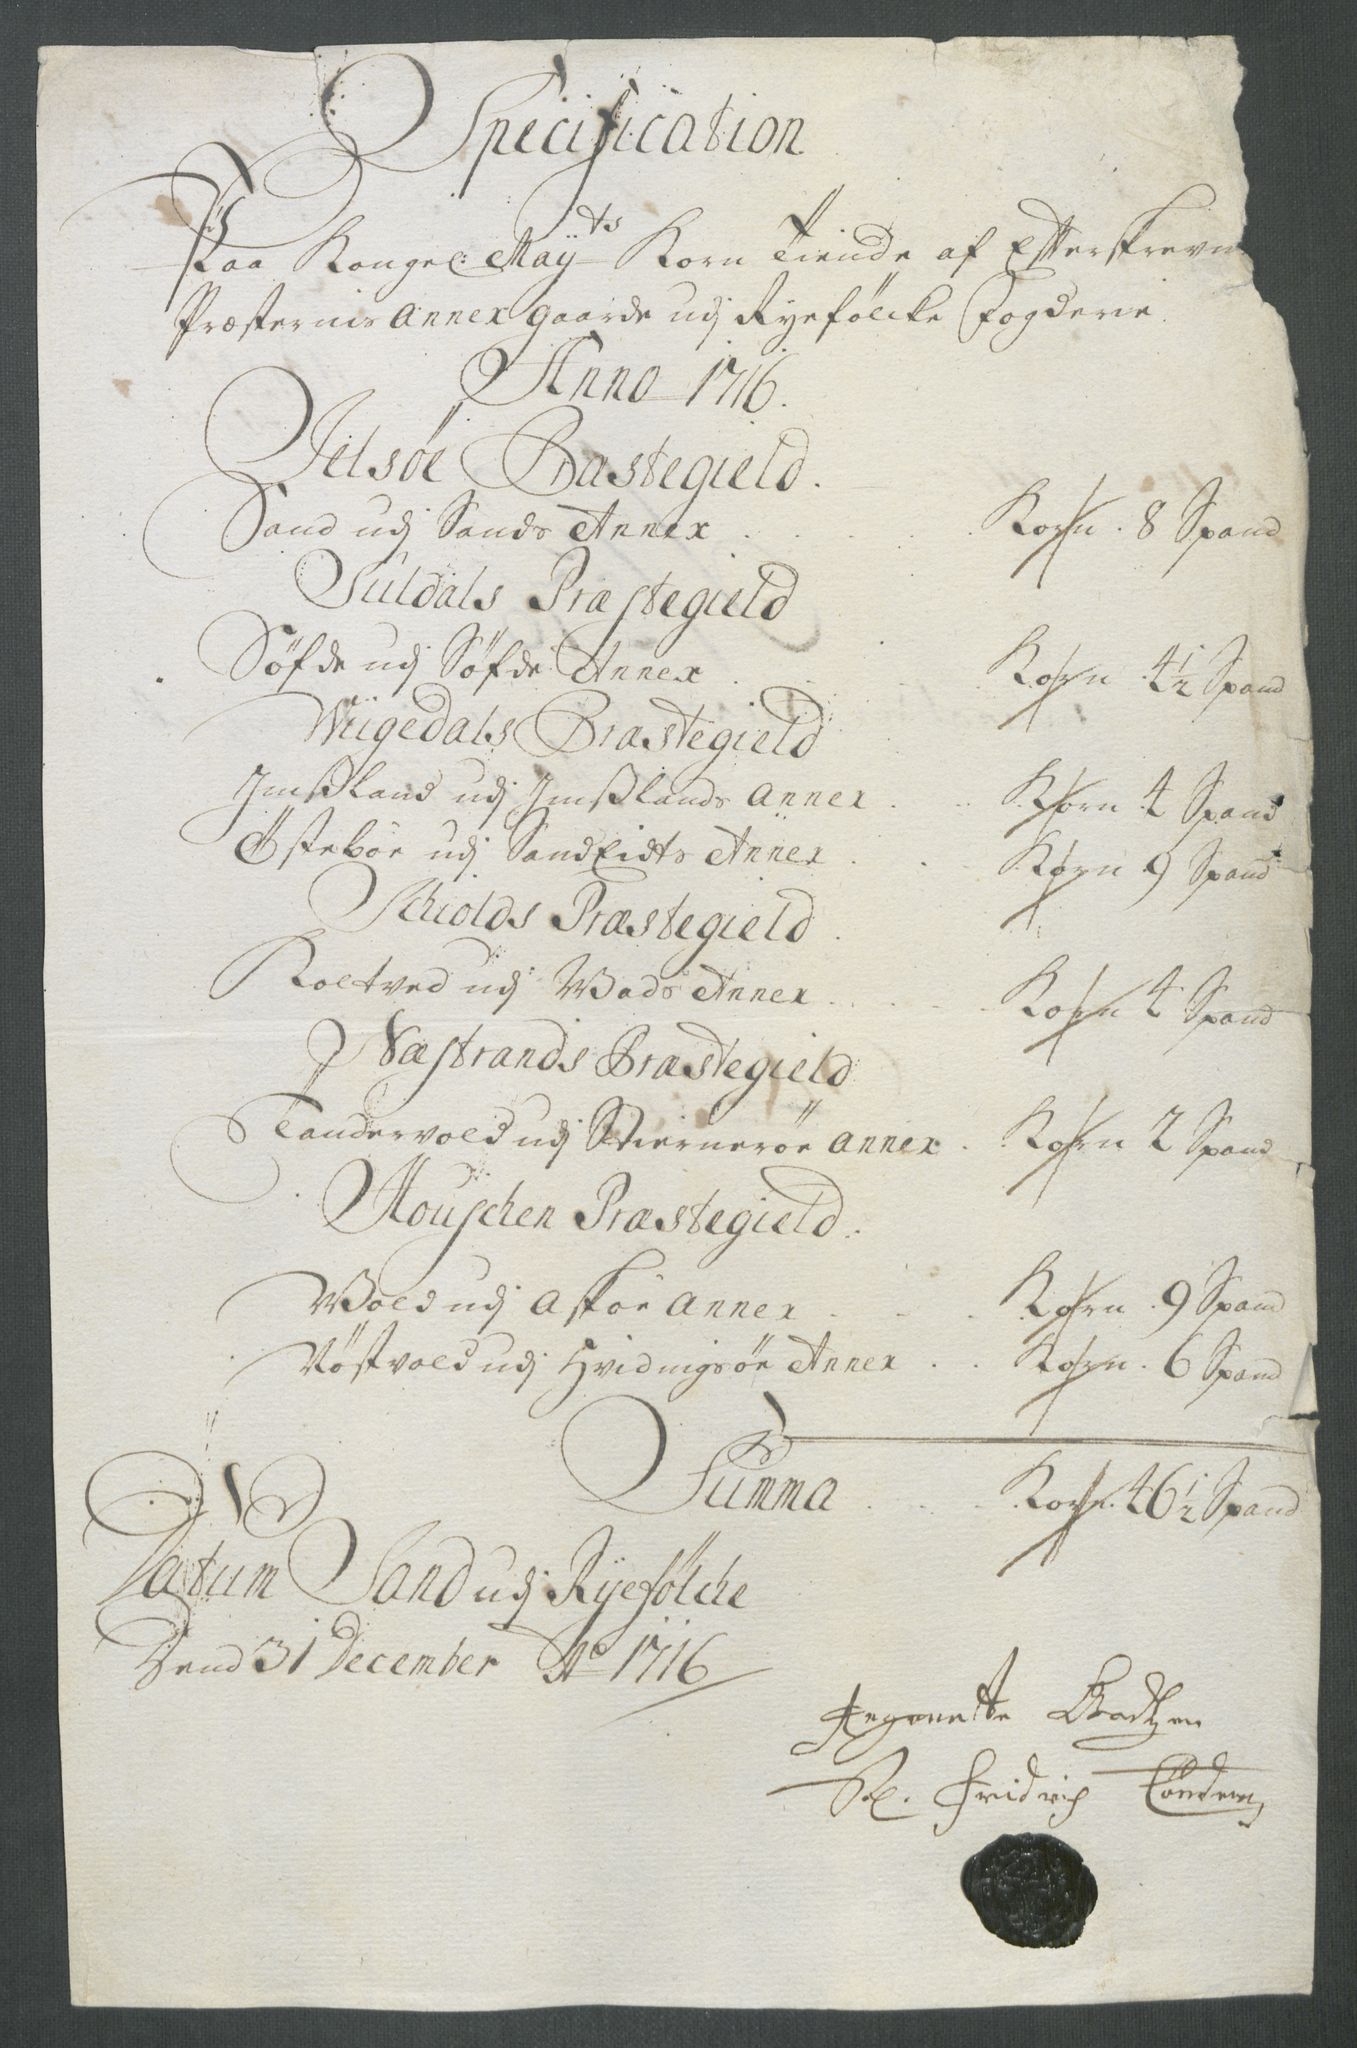 Specification
Paa Kongel: Mayts Korn Tiende af Efterskrevne
Præsternis Annex gaarde udj Ryefølcke Fogderie
Anno 1716.
Jelsøe Præstegield.
Sand udj Sands Annex . . . . Korn . 8 Spand
Suldals Præstegield
Søfde udj Søfde Annex . . . . Korn 4 1/2 Spand
Wiigedals Præstegield
Imßland udj Imßlands Annex . . . Korn 4 Spand
Østebøe udj Sandeidts Annex . . Korn 9 Spand
Schiolds Præstegield.
Koltved udj Wads Annex . . . . Korn 4 Spand
Næstrands Præstegield
Tandervold udj Stiernerøe Annex . Korn 2 Spand
Houschen Præstegield.
Wold udj Askøe Annex . . . Korn . 9 Spand
Nøstvold udj Hvidingsøe Annex . . Korn . 6 Spand
Summa . . . Korn . 46 1/2 Spand
Datum Sand udj Ryefølche
Dend 31 December Ao 1716
Sl. Fridrich Tönders